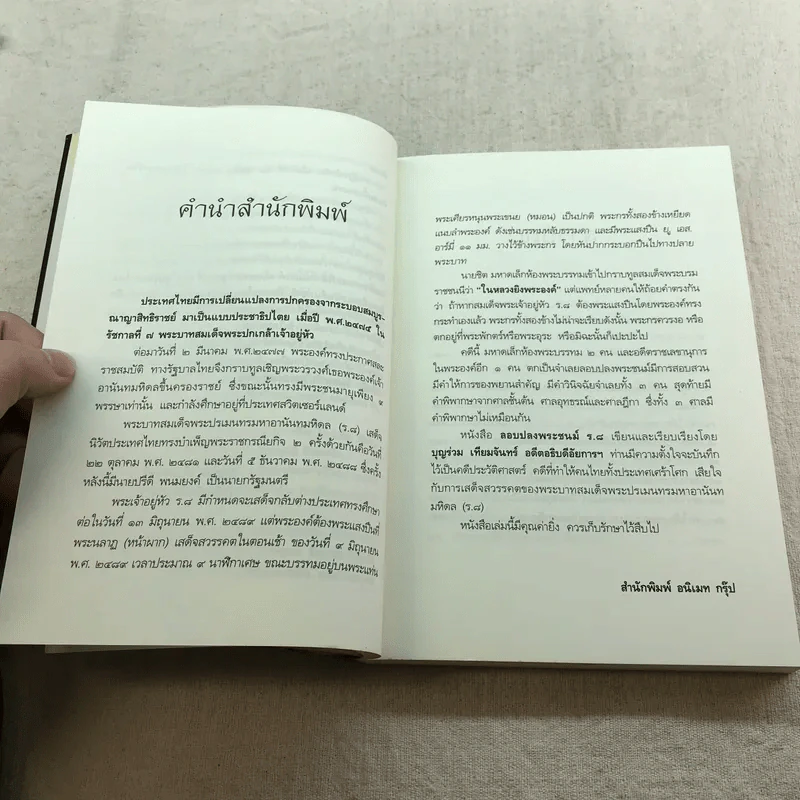 คำนำสำนักพิมพ์
ประเทศไทยมีการเปลี่ยนแปลงการปกครองจากระบอบสมบูร-
ณาญาสิทธิราชย์ มาเป็นแบบประชาธิปไตย เมื่อปี พ.ศ.๒๔๗๕ ใน
รัชกาลที่ ๗ พระบาทสมเด็จพระปกเกล้าเจ้าอยู่หัว
ต่อมาวันที่ ๒ มีนาคม พ.ศ.๒๔๗๗ พระองค์ทรงประกาศสละ
ราชสมบัติ ทางรัฐบาลไทยจึงกราบทูลเชิญพระวรวงศ์เธอพระองค์เจ้า
อานันทมหิดลขึ้นครองราชย์ ซึ่งขณะนั้นทรงมีพระชนมายุเพียง ๙
พรรษาเท่านั้น และกำลังศึกษาอยู่ที่ประเทศสวิตเซอร์แลนด์
พระบาทสมเด็จพระปรเมนทรมหาอานันทมหิดล (ร.๘) เสด็จ
นิวัตประเทศไทยทรงบำเพ็ญพระราชกรณียกิจ ๒ ครั้งด้วยกันคือวันที่
๒๒ ตุลาคม พ.ศ. ๒๔๘๑ และวันที่ ๕ ธันวาคม พ.ศ. ๒๔๘๘ ซึ่งครั้ง
หลังนี้มีนายปรีดี พนมยงค์ เป็นนายกรัฐมนตรี
พระเจ้าอยู่หัว ร.๘ มีกำหนดจะเสด็จกลับต่างประเทศทรงศึกษา
ต่อในวันที่ ๑๓ มิถุนายน พ.ศ. ๒๔๘๙ แต่พระองค์ต้องพระแสงปืนที่
พระนลาฏ (หน้าผาก) เสด็จสวรรคตในตอนเช้า ของวันที่ ๙ มิถุนายน
พ.ศ. ๒๔๘๙ เวลาประมาณ ๙ นาฬิกาเศษ ขณะบรรทมอยู่บนพระแท่น
พระเศียรหนุนพระเขนย (หมอน) เป็นปกติ พระกรทั้งสองข้างเหยียด
แนบลำพระองค์ ดังเช่นบรรทมหลับธรรมดา และมีพระแสงปืน ยู. เอส.
อาร์มี่ ๑๑ มม. วางไว้ข้างพระกร โดยหันปากกระบอกปืนไปทางปลาย
พระบาท
นายชิต มหาดเล็กห้องพระบรรทมเข้าไปกราบทูลสมเด็จพระบรม
ราชชนนีว่า "ในหลวงยิงพระองค์" แต่แพทย์หลายคนให้ถ้อยคำตรงกัน
ว่า ถ้าหากสมเด็จพระเจ้าอยู่หัว ร.๘ ต้องพระแสงปืนโดยพระองค์ทรง
กระทำเองแล้ว พระกรทั้งสองข้างไม่น่าจะเรียบดังนั้น พระกรควรงอ หรือ
ตกอยู่ที่พระพักตร์หรือพระอุระ หรือมิฉะนั้นก็เปะปะไป
คดีนี้ มหาดเล็กห้องพระบรรทม ๒ คน และอดีตราชเลขานุการ
ในพระองค์อีก ๑ คน ตกเป็นจำเลยลอบปลงพระชนม์มีการสอบสวน
มีคำให้การของพยานสำคัญ มีคำวินิจฉัยจำเลยทั้ง ๓ คน สุดท้ายมี
คำพิพากษาจากศาลชั้นต้น ศาลอุทธรณ์และศาลฎีกา ซึ่งทั้ง ๓ ศาลมี
คำพิพากษาไม่เหมือนกัน
หนังสือ ลอบปลงพระชนม์ ร.๘ เขียนและเรียบเรียงโดย
บุญร่วม เทียมจันทร์ อดีตอธิบดีอัยการฯ ท่านมีความตั้งใจจะบันทึก
ไว้เป็นคดีประวัติศาสตร์ คดีที่ทำให้คนไทยทั้งประเทศเศร้าโศก เสียใจ
กับการเสด็จสวรรคตของพระบาทสมเด็จพระปรเมนทรมหาอานันท
มหิดล (ร.๘)
หนังสือเล่มนี้มีคุณค่ายิ่ง ควรเก็บรักษาไว้สืบไป
สำนักพิมพ์ อนิเมท กรุ๊ป